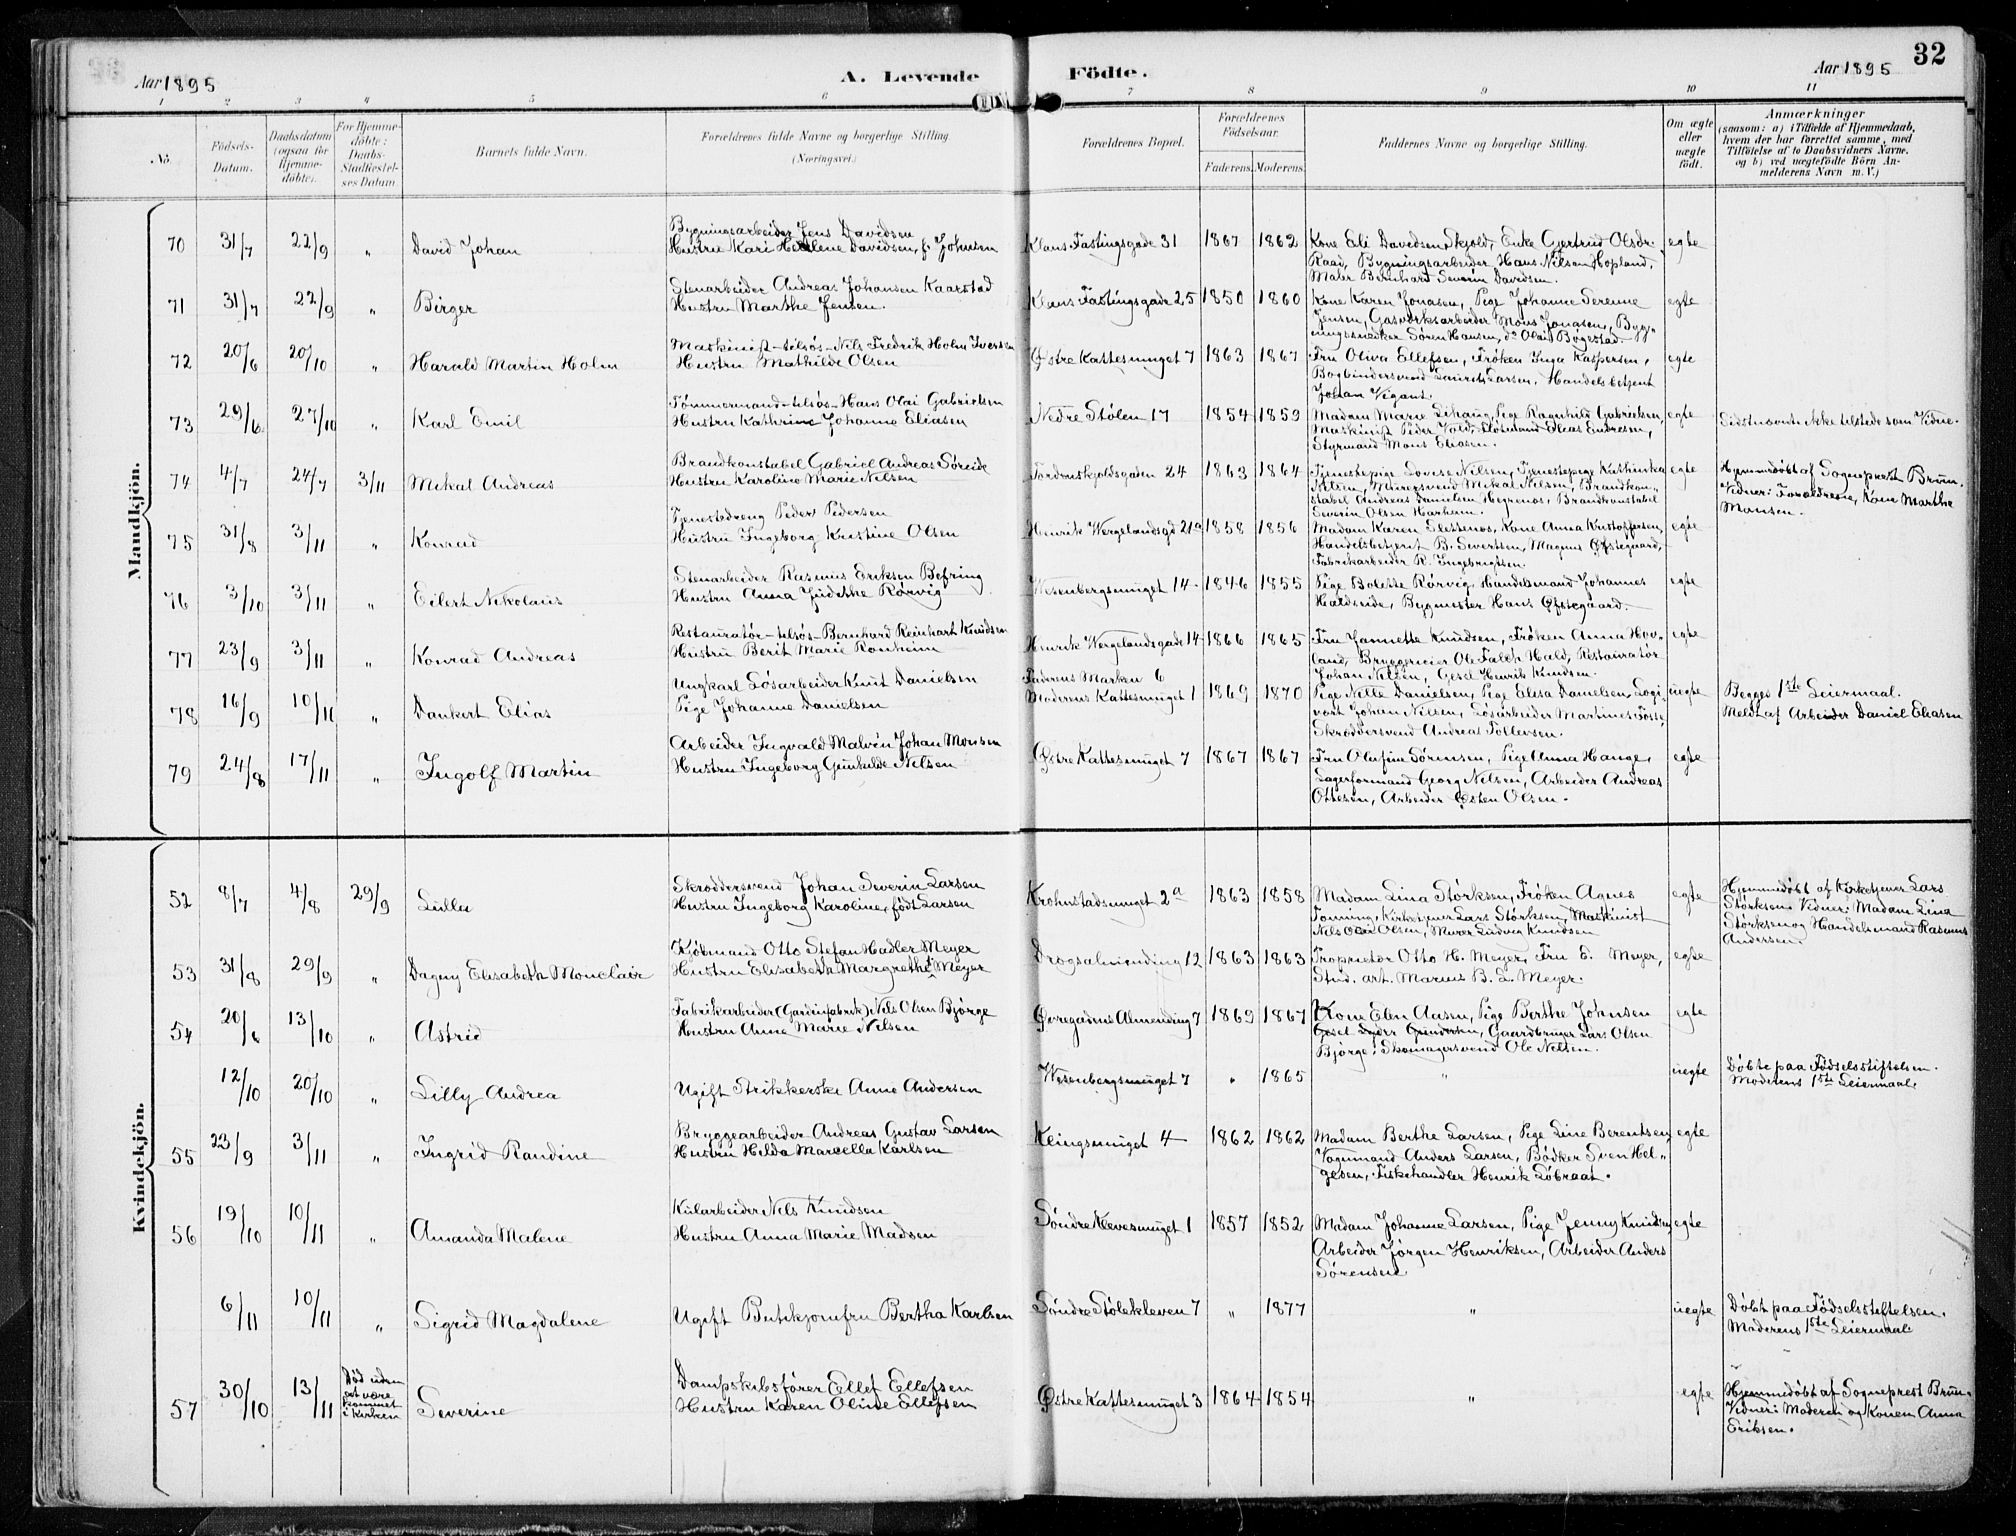 Aar 1895
A. Levende Födte.
Aar 1895
32
1 2 3 4 5 6 7 8 9 10 11
No.
Födsels-Datum.
Daabsdatum (ogsaa for Hjemme-döbte).
For Hjemme-döbte: Daabs-Stadfæstel-ses Datum
Barnets fulde Navn.
Forældrenes fulde Navne og borgerlige Stilling (Næringsvei.)
Forældrenes Bopæl.
Forældrenes Födselsaar.
Faderens. Moderens.
Faddernes Navne og borgerlige Stilling.
Om ægte eller uægte födt.
Anmærkninger
(saasom: a) i Tilfælde af Hjemmedaab, hvem der har forrettet samme, med Tilföielse af to Daabsvidners Navne. og b) ved uægtefödte Börn An-melderens Navn m. V.)
Mandkjön.
70 31/7 22/9 " David Johan
Bygningsarbeider Jens Davidsen
Hustru Kari Helene Davidsen, f. Johnsen
Klaus Fastingsgade 31 1867 1862
Kone Eli Davidsen Skjold, Enke Gjertrud Olsdr.
Raad, Bygningsarbeider Hans Nilsen Hopland,
Maler Bernhard Severin Davidsen.
egte
71 31/7 22/9 " Birger
Stenarbeider Andreas Johansen Kaarstad
Hustru Marthe Jensen.
Klaus Fastingsgade 25 1850 1860
Kone Karen Jonasen, Pige Johanne Serenne
Jensen, Gasverksarbeider Mons Jonasen, Byg-
ningssnedker Søren Hansen, do Olai Bøgestad.
egte
72 20/6 20/10 " Harald Martin Holm
Maskinist-tilsøs-Nils Fredrik Holm Iversen
Hustru Mathilde Olsen
Østre Kattesmuget 7 1863 1867
Fru Oliva Ellefsen, Frøken Inga Kaspersen,
Bogbindersvend Laurits Larsen, Handelsbetjent
Johan Vigant.
egte
73 29/6 27/10 " Karl Emil
Tømmermand-tilsøs-Hans Olai Gabrielsen
Hustru Kathrine Johanne Eliasen
Nedre Stølen 17 1854 1859
Madam Marie Lihaug, Pige Ragnhild Gabrielsen,
Maskinist Peder Vold, Elias Endresen,
Styrmand Mons Eliasen.
egte
Sidstnævnte ikke tilstede som Vidne.
74 4/7 24/7 3/11 Mikal Andreas
Brandkonstabel Gabriel Andreas Søreide
Hustru Karoline Marie Nilsen
Tordenskjoldsgaden 24 1863 1864
Tjenestepige Lovise Nilsen, Tjenestepige Kathinka
Nilsen, Murersvend Mikal Nilsen, Brandkon-
stabel Andreas Danielsen, Brandkonstabel
Severin Olsen Harham.
egte
Hjemmedøbt af Sogneprest Brun.
Vidner: Forældrene, Kone Marthe
Monsen.
75 31/8 3/11 " Konrad
Tjenestedreng Peder Pedersen
Hustru Ingeborg Kristine Olsen
Henrik Wergelandsgd 21a 1858 1856
Madam Karen, Kone Anna Kristoffersen,
Handelsbetjent B. Sivertsen, Magnus Østegaard,
Fabrikarbeider R. Ingebrigtsen.
egte
76 3/10 3/11 " Eilert Nikolaus
Stenarbeider Rasmus Eriksen Befring
Hustru Anna Judithe Rørvig
Wesenbergsmuget 14 1846 1855
Pige Bolette Rørvig, Handelsmand Johannes
Haldseide, Bygmester Hans Østegaard.
egte
77 23/9 3/11 " Konrad Andreas
Restauratør-tilsøs-Bernhard Reinhart Knudsen
Hustru Berit Marie Ronheim
Henrik Wergelandsgade 14 1866 1865
Fru Jannette Knudsen, Frøken Anna Hov-
land, Bryggerieier Ole Falch Hald, Restauratør
Johan Nilsen, Gesel Henrik Knudsen.
egte
78 16/9 10/11 " Dankert Elias
Ungkarl Løsarbeider Knut Danielsen
Pige Johanne Danielsen
Faderens Marken 6
Moderens Kattesmuget 1 1869 1870
Pige Nille Danielsen, Pige Elisa Danielsen, Logi-
vert Johan Nilsen, Løsarbeider Martines Fosse,
Skræddersvend Andreas Tollevsen.
uegte
Begges 1ste Leiermaal.
Meldt af Arbeider Daniel Eliasen
79 24/8 17/11 " Ingolf Martin
Arbeider Ingvald Malvin Johan Monsen
Hustru Ingeborg Gunhilde Nilsen
Østre Kattesmuget 7 1867 1867
Fru Olufine Sørensen, Pige Anna Hauge,
Lagerformand Georg Nilsen, Arbeider Andreas
Ottesen, Arbeider Østen Olsen.
egte
Kvindekjön.
52 8/7 4/8 29/9 Lulla
Skræddersvend Johan Severin Larsen
Hustru Ingeborg Karoline, født Larsen
Krohnstadsmuget 2a 1863 1858
Madam Lina Størksen, Frøken Agnes
Tonning, Kirketjener Lars Størksen, Maskinist
Nils Olai Olsen, Murer Ludvig Knudsen
egte
Hjemmedøbt af Kirketjener Lars
Størksen. Vidner: Madam Lina
Størksen og Handelsmand Rasmus
Andersen.
53 31/8 29/9 " Dagny Elisabeth Monclair
Kjøbmand Otto Stefan Hadler Meyer
Hustru Elisabeth Margrethe f. Meyer
Dragsalmending 12 1863 1863
Proprietør Otto H. Meyer, Fru E. Meyer,
Stud. art. Marius B. L. Meyer.
egte
54 20/6 13/10 " Astrid
Fabrikarbeider (Gardinfabrik) Nils Olsen Bjørge
Hustru Anne Marie Nilsen
Øvregadens Almending 7 1869 1867
Kone Elen Aasen, Pige Berthe Johnsen
Gesel Gundersen, Gaardbruger Lars Olsen
Bjørge, Skomagersvend Ole Nilsen.
egte
12/10 20/10 " Lilly Andrea
Ugift Strikkerske Anne Andersen
Wesenbergsmuget 7 " 1865
"
uegte
Døbt paa Fødselsstiftelsen.
Moderens 1ste Leiermaal.
55 23/9 3/11 " Ingrid Randine
Bryggearbeider Andreas Gustav Larsen
Hustru Hilda Marcella Karlsen
Klingsmuget 4 1862 1862
Madam Berthe Larsen, Pige Line Berentsen
Vognmand Anders Larsen, Bødker Sven Hel-
gesen, Fiskehandler Henrik Løbraat.
egte
56 19/10 10/11 " Amanda Malene
Kularbeider Nils Knudsen
Hustru Anna Marie Madsen
Søndre Klevesmuget 1 1857 1852
Madam Johanne Larsen, Pige Jenny Knudsen,
Arbeider Jørgen Henriksen, Arbeider Anders
Sørensen
egte
6/11 10/11 " Sigrid Magdalene
Ugift Butikjomfru Bertha Karlsen
Søndre Stølekleven 7 " 1877
"
uegte
Døbt paa Fødselsstiftelsen.
Moderens 1ste Leiermaal
57 30/10 13/11
Død uden
at være
kommet
i kirken
Severine
Dampskibsfører Ellef Ellefsen
Hustru Karen Oline Ellefsen
Østre Kattesmuget 3 1864 1854
"
egte
Hjemmedøbt af Sogneprest Brun.
Vidner: Moderen og Konen Anna
Eriksen.